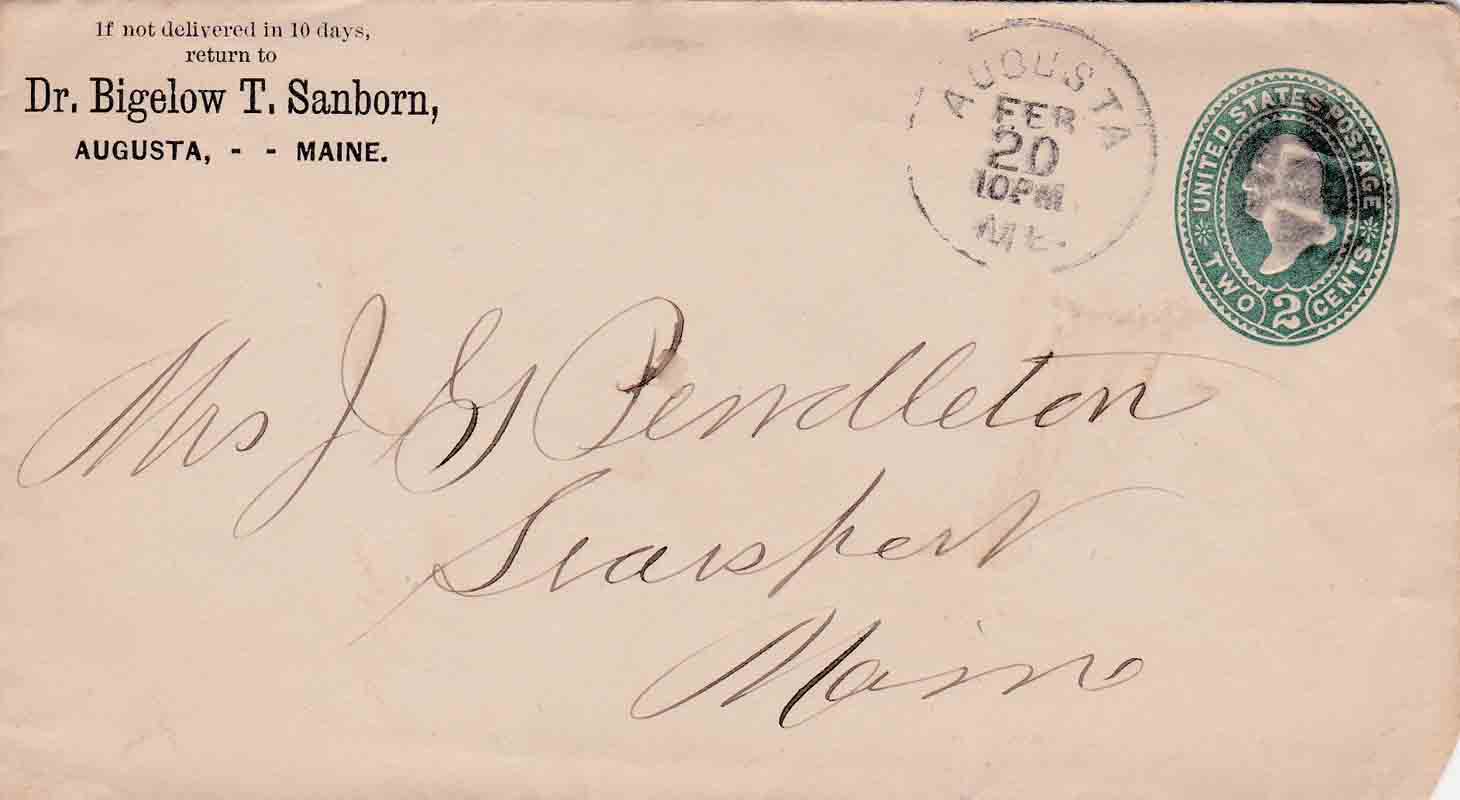 If not delivered in 10 days,
return to
Dr. Bigelow T. Sanborn,
AUGUSTA, - - MAINE.
AUGUSTA
FEB
20
10PM
ME.
UNITED STATES POSTAGE
TWO 2 CENTS
Mrs J G Pendleton
Searsport
Maine